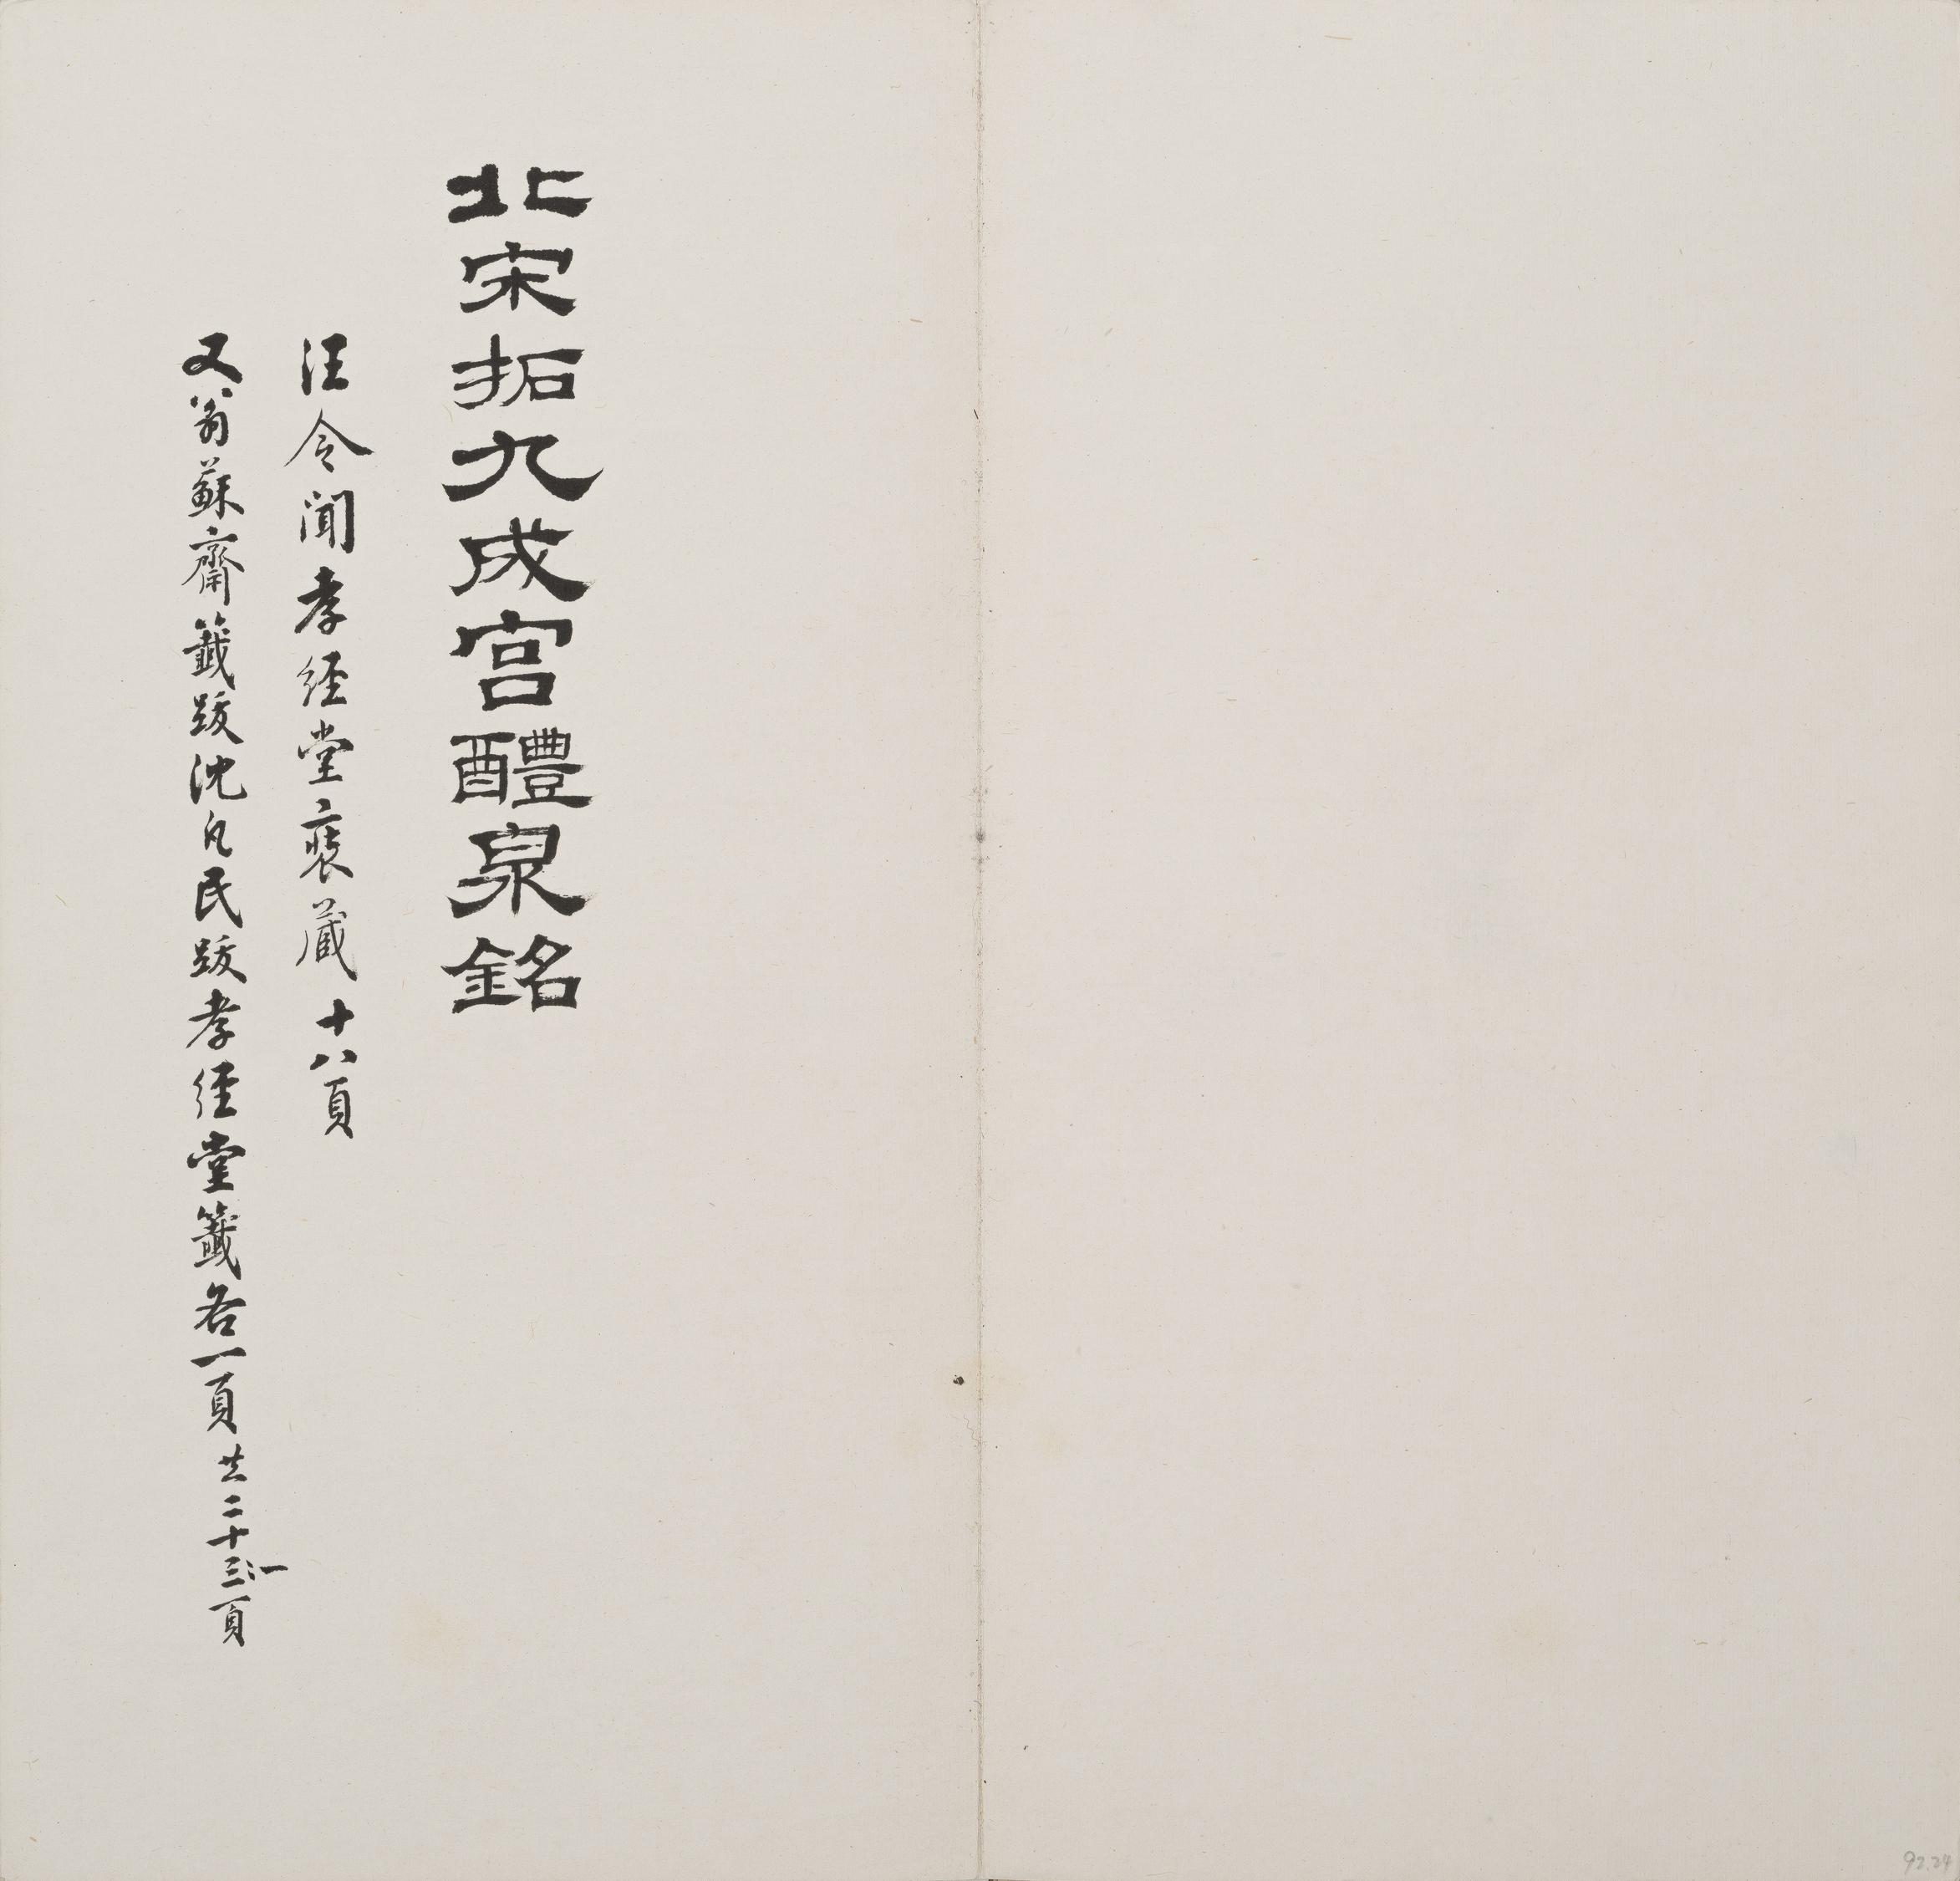 北宋拓九成宮醴泉銘
汪令聞孝經堂裘藏 十八頁
又翁蘇齋籤跋沈凡民跋孝經堂籤各一頁 共二十三頁
92.24